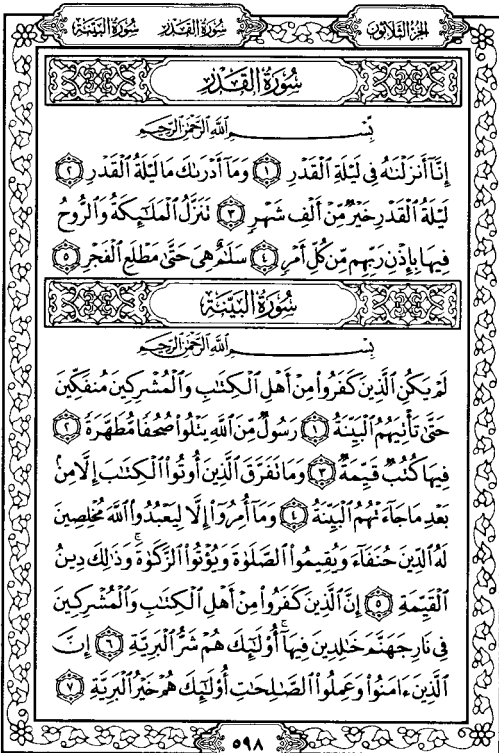 الجزء الثلاثون سورة القدر سورة البينة
سُورَةُ القَدْرِ
بِسْمِ ٱللَّهِ ٱلرَّحْمَٰنِ ٱلرَّحِيمِ
إِنَّآ أَنزَلْنَٰهُ فِى لَيْلَةِ ٱلْقَدْرِ ١ وَمَآ أَدْرَىٰكَ مَا لَيْلَةُ ٱلْقَدْرِ ٢
لَيْلَةُ ٱلْقَدْرِ خَيْرٌ مِّنْ أَلْفِ شَهْرٍ ٣ تَنَزَّلُ ٱلْمَلَٰٓئِكَةُ وَٱلرُّوحُ
فِيهَا بِإِذْنِ رَبِّهِم مِّن كُلِّ أَمْرٍ ٤ سَلَٰمٌ هِىَ حَتَّىٰ مَطْلَعِ ٱلْفَجْرِ ٥
سُورَةُ البَيِّنَةِ
بِسْمِ ٱللَّهِ ٱلرَّحْمَٰنِ ٱلرَّحِيمِ
لَمْ يَكُنِ ٱلَّذِينَ كَفَرُوا۟ مِنْ أَهْلِ ٱلْكِتَٰبِ وَٱلْمُشْرِكِينَ مُنفَكِّينَ
حَتَّىٰ تَأْتِيَهُمُ ٱلْبَيِّنَةُ ١ رَسُولٌ مِّنَ ٱللَّهِ يَتْلُوا۟ صُحُفًا مُّطَهَّرَةً ٢
فِيهَا كُتُبٌ قَيِّمَةٌ ٣ وَمَا تَفَرَّقَ ٱلَّذِينَ أُوتُوا۟ ٱلْكِتَٰبَ إِلَّا مِنۢ
بَعْدِ مَا جَآءَتْهُمُ ٱلْبَيِّنَةُ ٤ وَمَآ أُمِرُوٓا۟ إِلَّا لِيَعْبُدُوا۟ ٱللَّهَ مُخْلِصِينَ
لَهُ ٱلدِّينَ حُنَفَآءَ وَيُقِيمُوا۟ ٱلصَّلَوٰةَ وَيُؤْتُوا۟ ٱلزَّكَوٰةَ ۚ وَذَٰلِكَ دِينُ
ٱلْقَيِّمَةِ ٥ إِنَّ ٱلَّذِينَ كَفَرُوا۟ مِنْ أَهْلِ ٱلْكِتَٰبِ وَٱلْمُشْرِكِينَ
فِى نَارِ جَهَنَّمَ خَٰلِدِينَ فِيهَآ ۚ أُو۟لَٰٓئِكَ هُمْ شَرُّ ٱلْبَرِيَّةِ ٦ إِنَّ
ٱلَّذِينَ ءَامَنُوا۟ وَعَمِلُوا۟ ٱلصَّٰلِحَٰتِ أُو۟لَٰٓئِكَ هُمْ خَيْرُ ٱلْبَرِيَّةِ ٧
٥٩٨